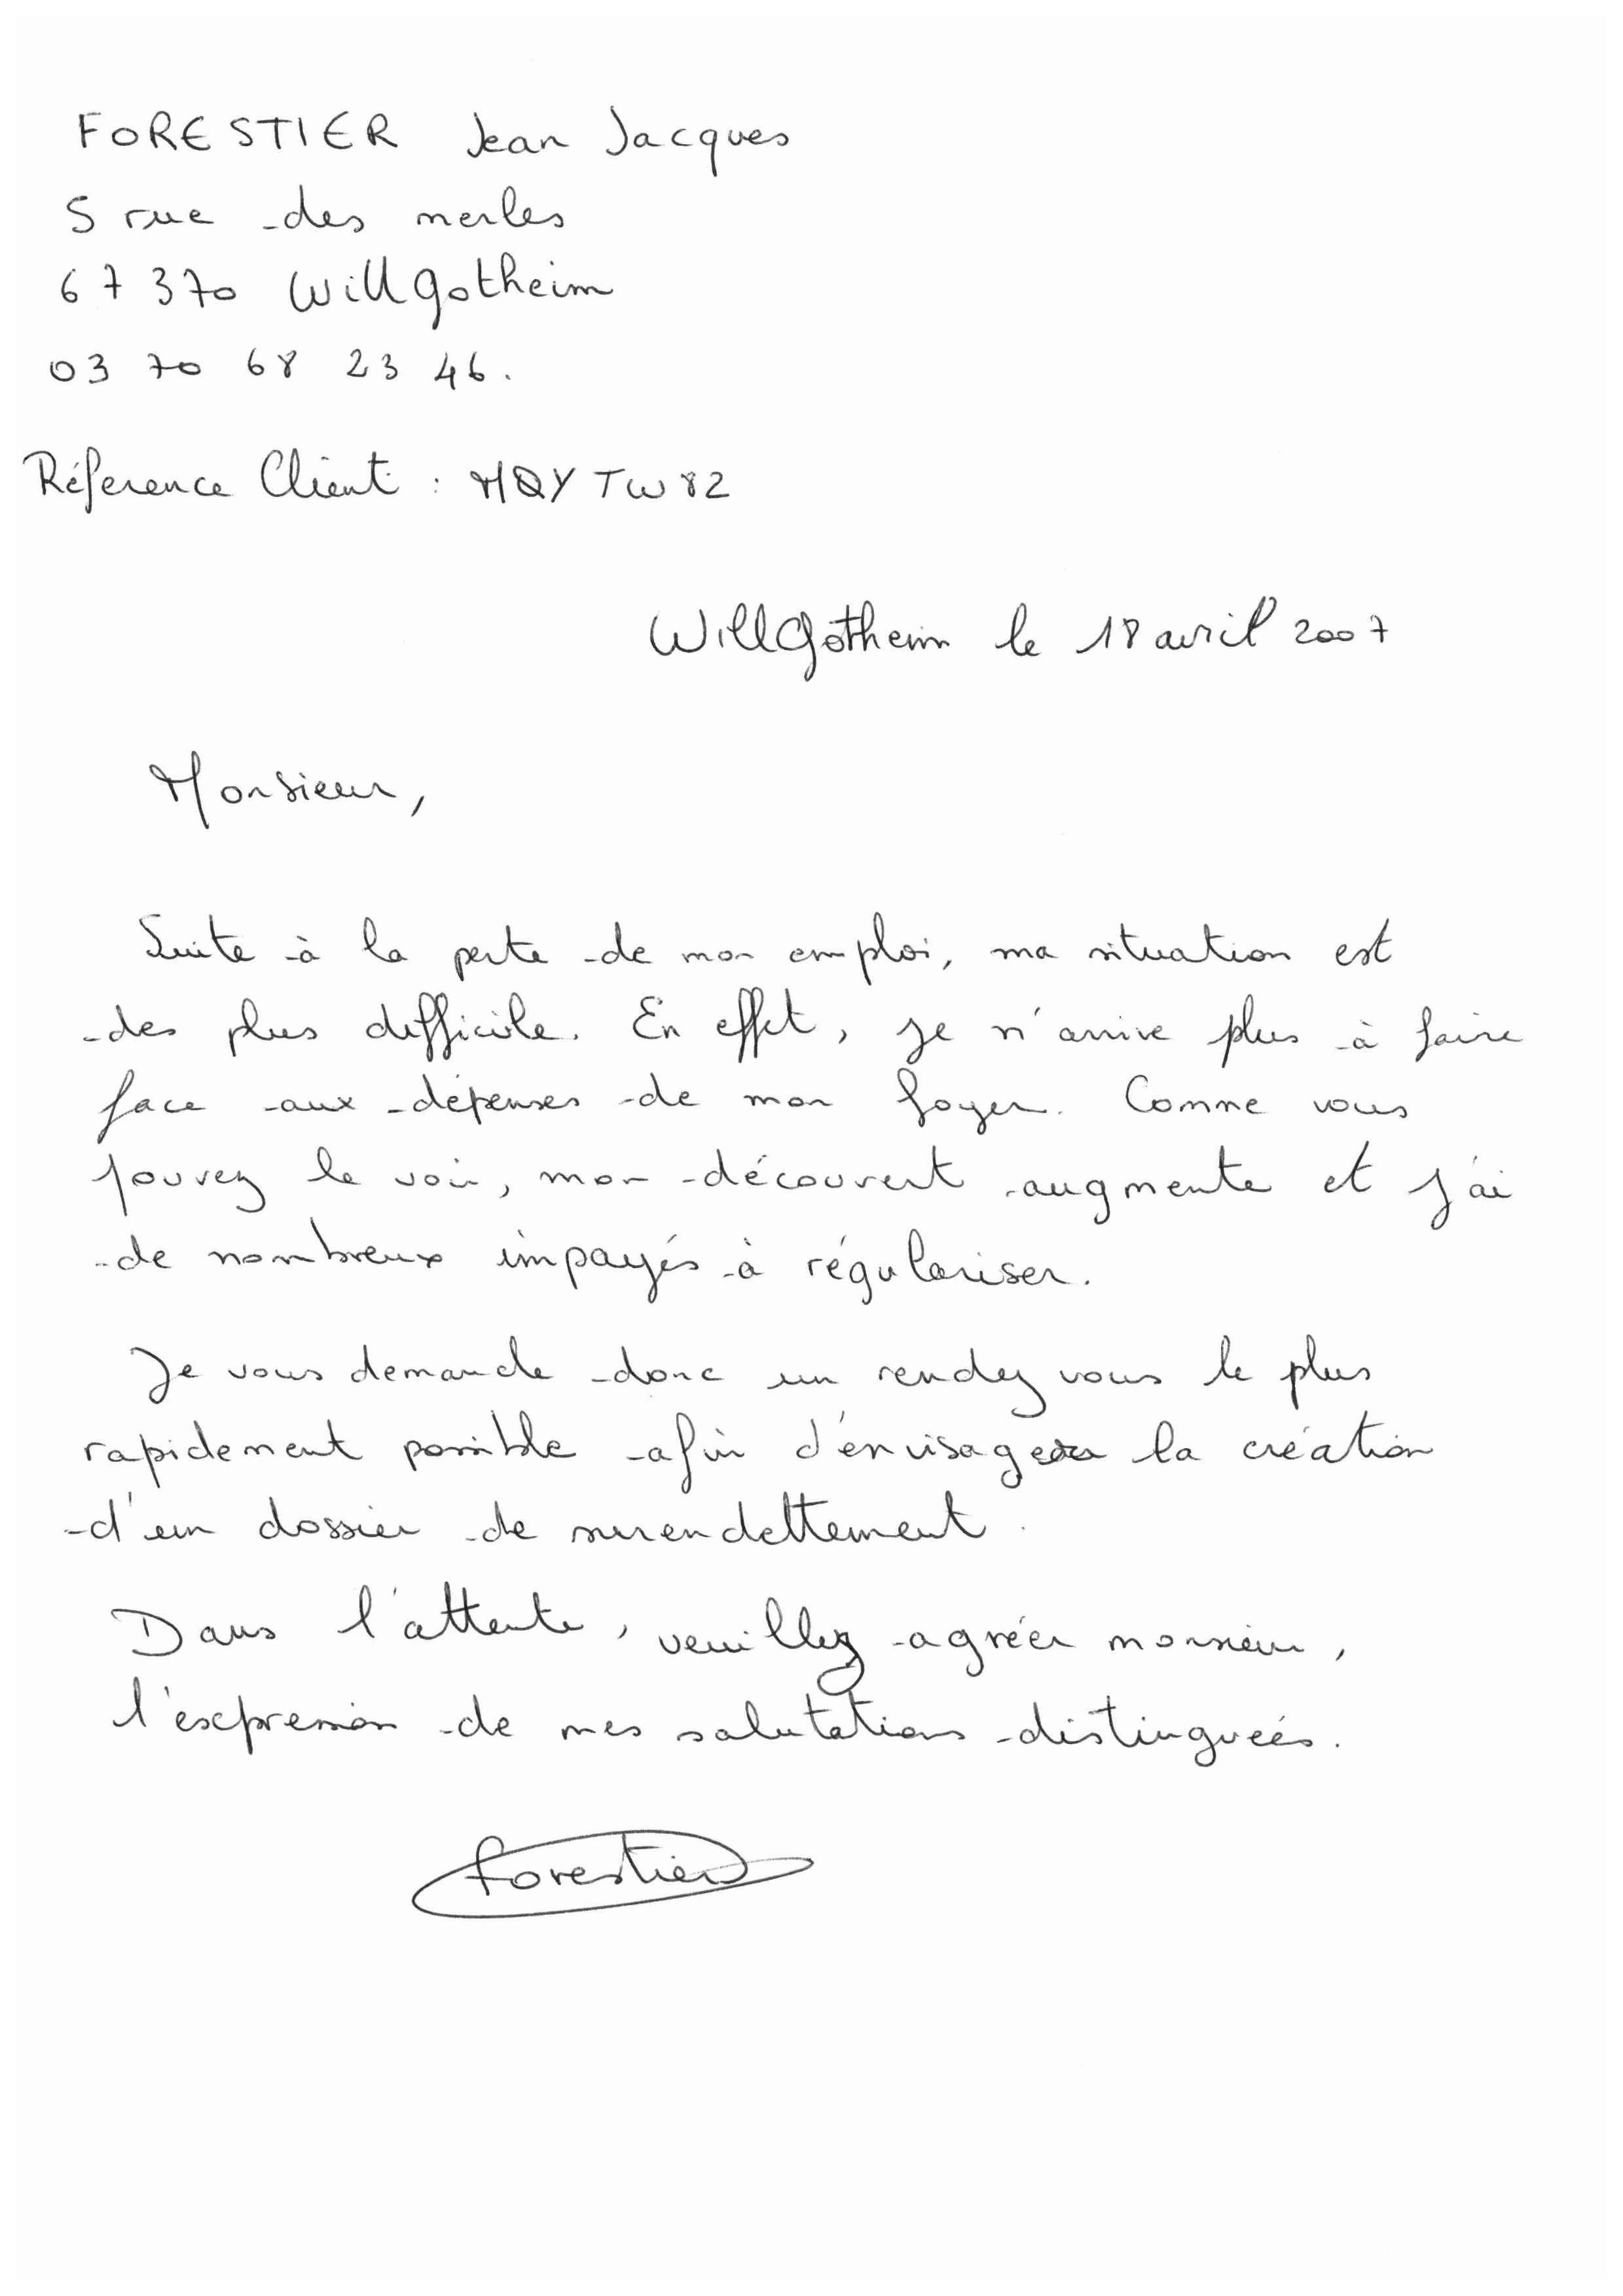 FORESTIER Jean Jacques
5 rue des merles
67370 Willgotheim
03 70 68 23 46.
Réference Client : MQYTW82
Willgotheim le 18 avril 2007
Monsieur,
Suite à la perte de mon emploi, ma situation est
des plus difficile. En effet, je n'arrive plus à faire
face aux dépenses de mon foyer. Comme vous
pouvez le voir, mon découvert augmente et j'ai
de nombreux impayés à régulariser.
Je vous demande donc un rendez vous le plus
rapidement possible afin d'envisager la création
d'un dossier de surendettement.
Dans l'attente, veuillez agréer monsieur,
l'expression de mes salutations distinguées.
Forestier